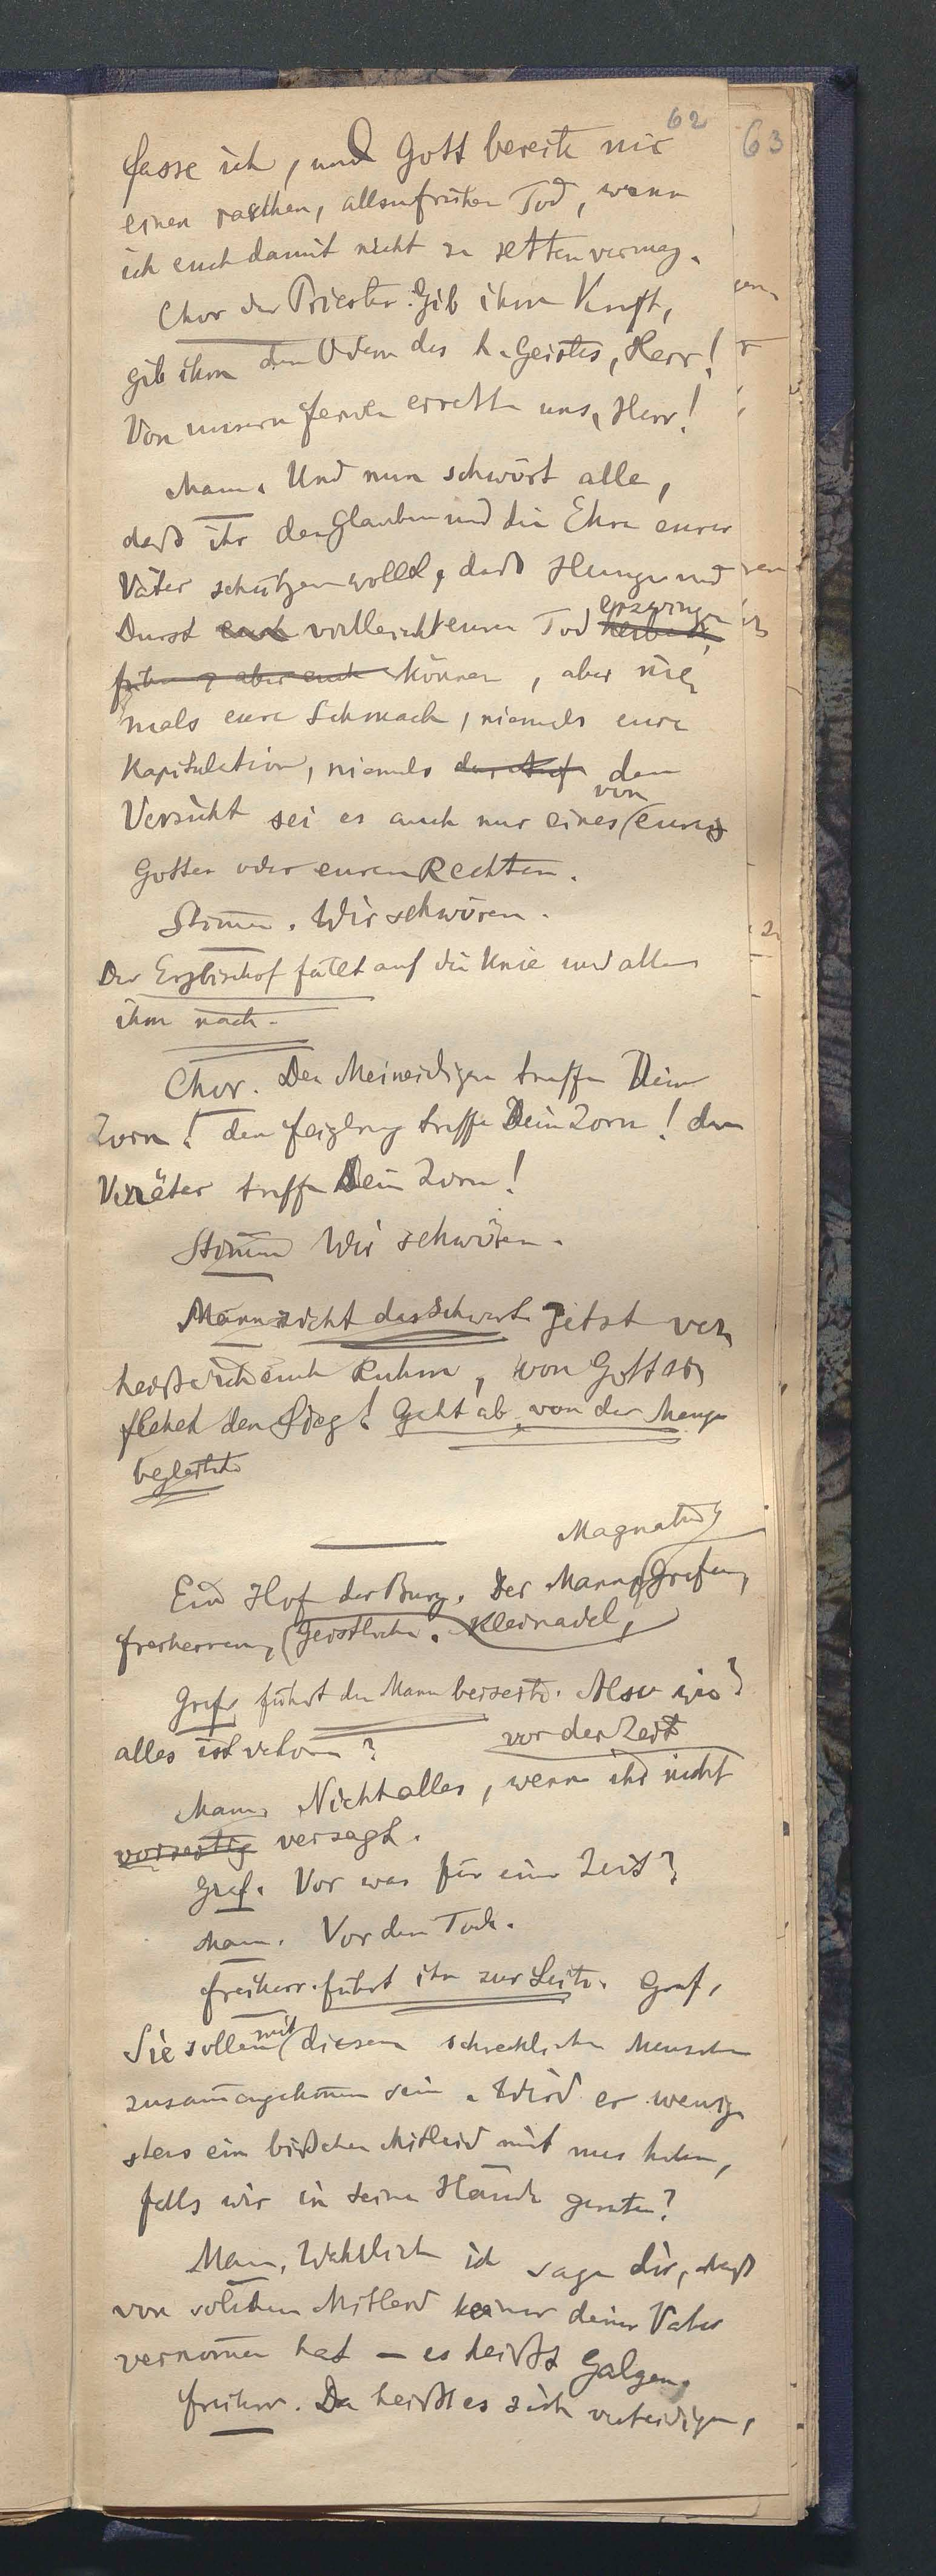 62
63
fasse ich, und Gott bereite mir
einen raschen, allzufrühen Tod, wenn
ich euch damit nicht zu retten vermag.
Chor der Priester. Gib ihm Kraft,
gib ihm den Odem des h. Geistes, Herr!
Von unsern Feinden errette uns, Herr!
Mann. Und nun schwört alle,
daß ihr den Glauben und die Ehre eurer
Väter schützen wollt, daß Hunger und
Durst euch vielleicht euren Tod erzwingen
können, aber nie
mals eure Schmach, niemals eure
Kapitulation, niemals den
Verzicht sei es auch nur eines von euren
Götter oder euren Rechten.
Stimm. Wir schwören.
Der Erzbischof fällt auf die Knie und alle
ihm nach.
Chor. Den Meineidigen treffe Dein
Zorn! den Feigling treffe Dein Zorn! den
Verräter treffe Dein Zorn!
Stimm Wir schwören.
Mann zieht das Schwert Jetzt ver
heiße ich euch Ruhm, von Gott er
flehet den Sieg! Geht ab, von der Menge
begleitet
Magnaten
Ein Hof der Burg. Der Mann, Grafen,
Freiherren, Geistliche. Kleinadel,
Graf führt den Mann beiseite. Also wie?
alles ist verloren?
vor der Zeit
Mann. Nicht alles, wenn ihr nicht
vorzeitig versagt.
Graf. Vor was für einer Zeit?
Mann. Vor dem Tode.
Freiherr. führt ihn zur Seite. Graf,
Sie sollen mit diesem schrecklichen Menschen
zusammengekommen sein. Wird er wenig
stens ein bißchen Mitleid mit uns haben,
falls wir in seine Hände geraten?
Mann. Wahrlich ich sage dir, daß
von solchem Mitleid keiner deiner Väter
vernommen hat – es heißt Galgen.
Freiherr. Da heißt es sich verteidigen,